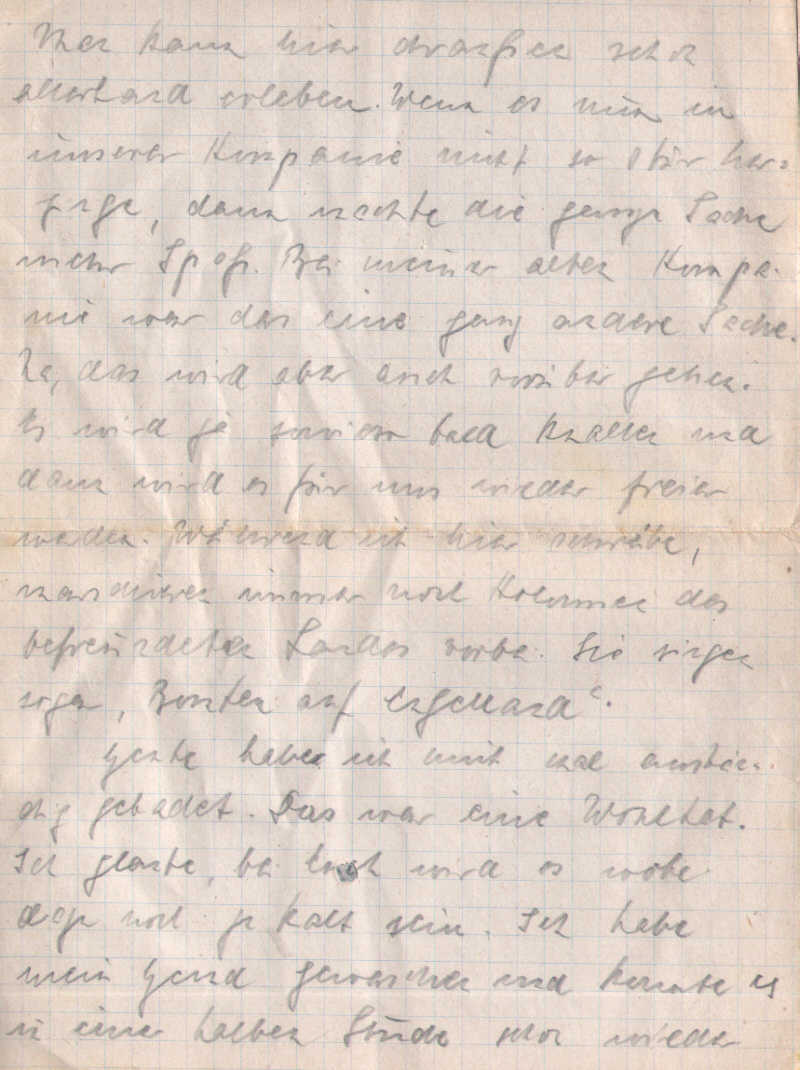 Man kann hier draußen schon
allerhand erleben. Wenn es nur in
unserer Kompanie nicht so stur her-
ginge, dann machte die ganze Sache
mehr Spaß. Bei meiner alten Kompa-
nie war das eine ganz andere Sache.
Na, das wird aber auch vorüber gehen.
Es wird ja sowieso bald knallen und
dann wird es für uns wieder freier
werden. Während ich hier schreibe,
marschieren immer noch Kolonnen des
befreundeten Landes vorbei. Sie singen
sogar „Bomben auf Engelland“.
Heute habe ich mich mal anstän-
dig gebadet. Das war eine Wohltat.
Ich glaube, bei Euch wird es wohl
dazu noch zu kalt sein. Ich habe
mein Hemd gewaschen und konnte es
in einer halben Stunde schon wieder